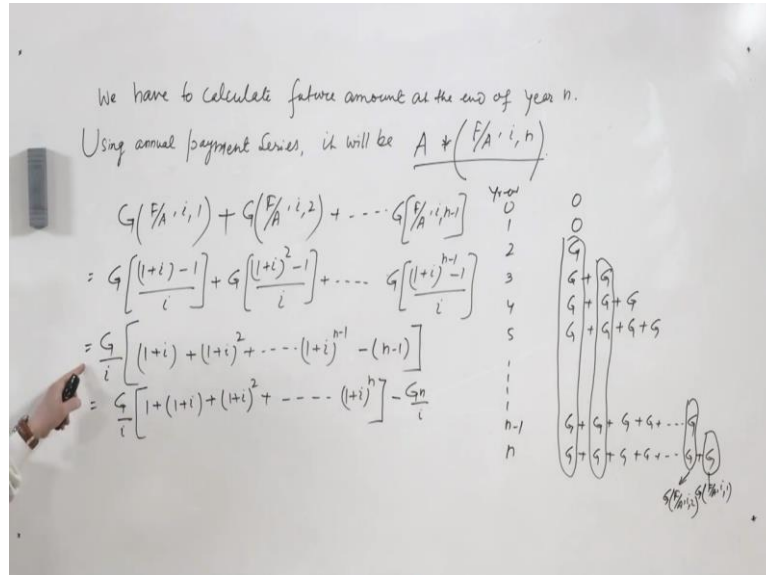 We have to calculate future amount at the end of year n.
Using annual payment series, it will be A * (F/A, i, n)
G(F/A, i, 1) + G(F/A, i, 2) + ---- G[F/A, i, n-1]
= G[((1+i)-1)/i] + G[((1+i)^2-1)/i] + ---- G[((1+i)^(n-1)-1)/i]
= G/i [(1+i) + (1+i)^2 + ---- (1+i)^(n-1) - (n-1)]
= G/i [1+(1+i)+(1+i)^2 + ---- (1+i)^n] - Gn/i
0 0
1 0
2 G
3 G + G
4 G + G + G
5 G + G + G + G
n-1 G + G + G + G + ... G
n G + G + G + G + ... G + G
G(F/A, i, 2) G(F/A, i, 1)